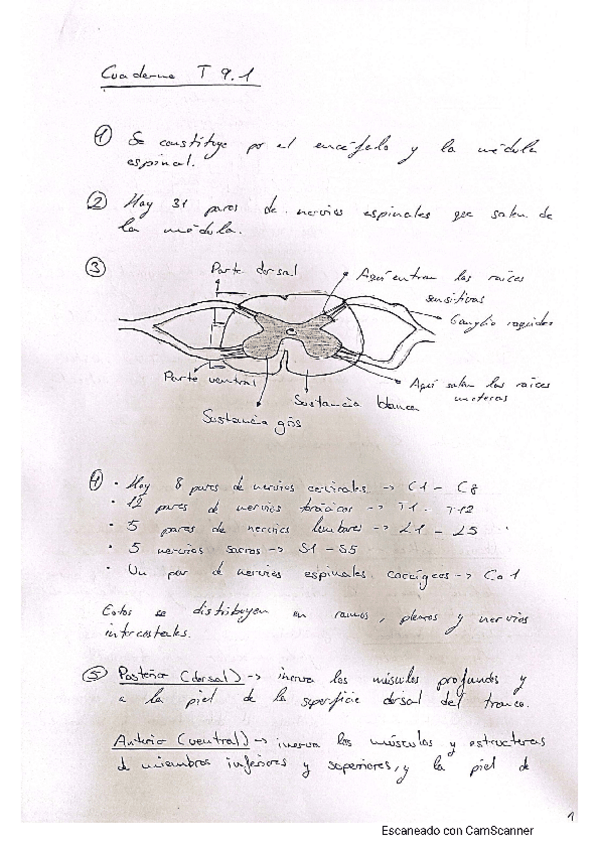 Cuaderno T 9.1
① Se constituye por el encéfalo y la médula
espinal.
② Hay 31 pares de nervios espinales que salen de
la médula.
③ Parte dorsal
Aquí entran las raíces
sensitivas
Ganglio raquídeo
Parte ventral
Aquí salen las raíces
motoras
Sustancia blanca
Sustancia gris
④ · Hay 8 pares de nervios cervicales -> C1 - C8
· 12 pares de nervios torácicos -> T1 - T12
· 5 pares de nervios lumbares -> L1 - L5
· 5 nervios sacros -> S1 - S5
· Un par de nervios espinales coccígeos -> Co1
Estos se distribuyen en ramos, plexos y nervios
intercostales.
⑤ Posterior (dorsal) -> inerva los músculos profundos y
a la piel de la superficie dorsal del tronco.
Anterior (ventral) -> inerva los músculos y estructuras
de miembros inferiores y superiores, y la piel de
1
Escaneado con CamScanner